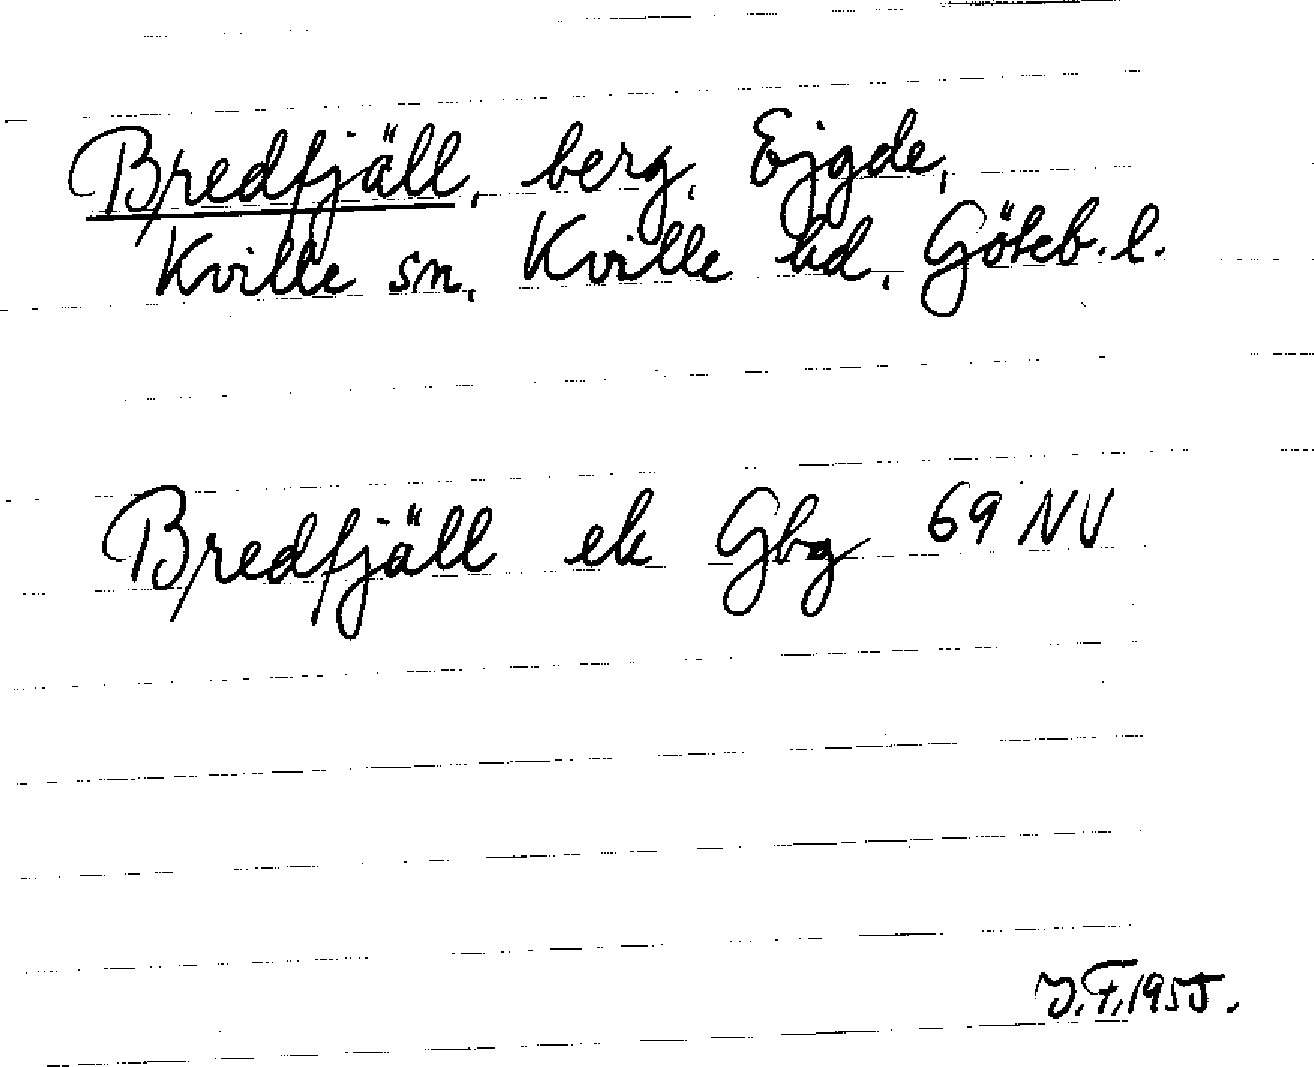 Bredfjäll, berg, Ejgde,
Kville sn, Kville hd, Göteb. l.
Bredfjäll ek Gbg 69 NV
J.F. 1955.